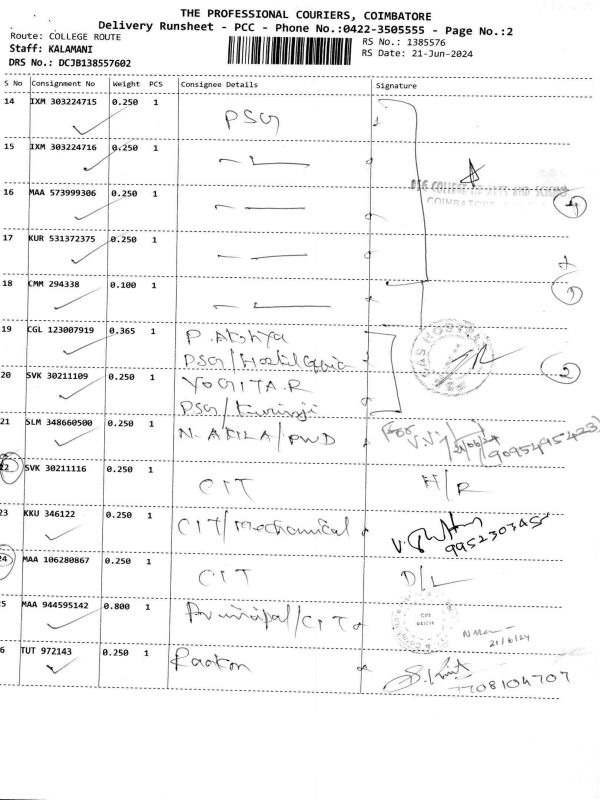 THE PROFESSIONAL COURIERS, COIMBATORE
Delivery Runsheet - PCC - Phone No.:0422-3505555 - Page No.:2
Route: COLLEGE ROUTE
RS No.: 1385576
Staff: KALAMANI
RS Date: 21-Jun-2024
DRS No.: DCJB138557602
S No Consignment No Weight PCS Consignee Details Signature
14 IXM 303224715 0.250 1 PSG
15 IXM 303224716 0.250 1
PSG COLLEGE OF ARTS AND SCIENCE
COIMBATORE
16 MAA 573999306 0.250 1
17 KUR 531372375 0.250 1
18 CMM 294338 0.100 1
19 CGL 123007919 0.365 1 P. Akshya
PSG/Hostel
2
20 SVK 30211109 0.250 1 YOGITA.R
PSG/Kurinji
21 SLM 348660500 0.250 1 N. AKILA/PWD
(For 21/06/24 9095495423)
22 SVK 30211116 0.250 1 CIT H/R
23 KKU 346122 0.250 1 CIT/Mechanical
24 MAA 106280867 0.250 1 CIT D/L
5 MAA 944595142 0.800 1 Principal/CIT
21/6/24
6 TUT 972143 0.250 1
7708104707